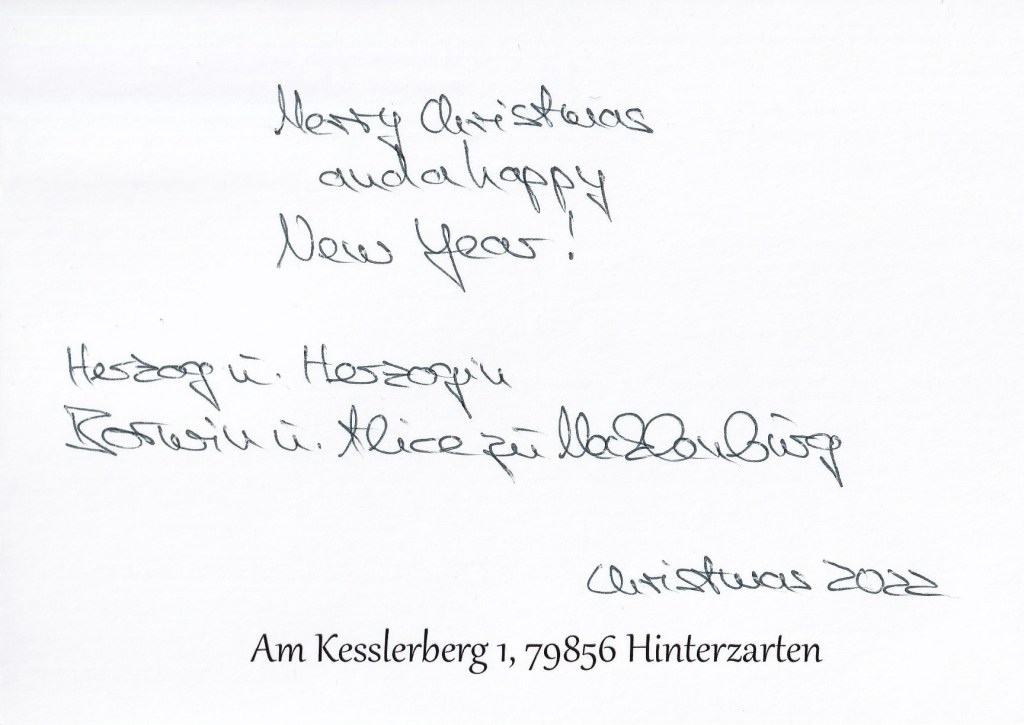 Merry Christmas
and a happy
New Year!
Herzog u. Herzogin
Borwin u. Alice zu Mecklenburg
Christmas 2022
Am Kesslerberg 1, 79856 Hinterzarten